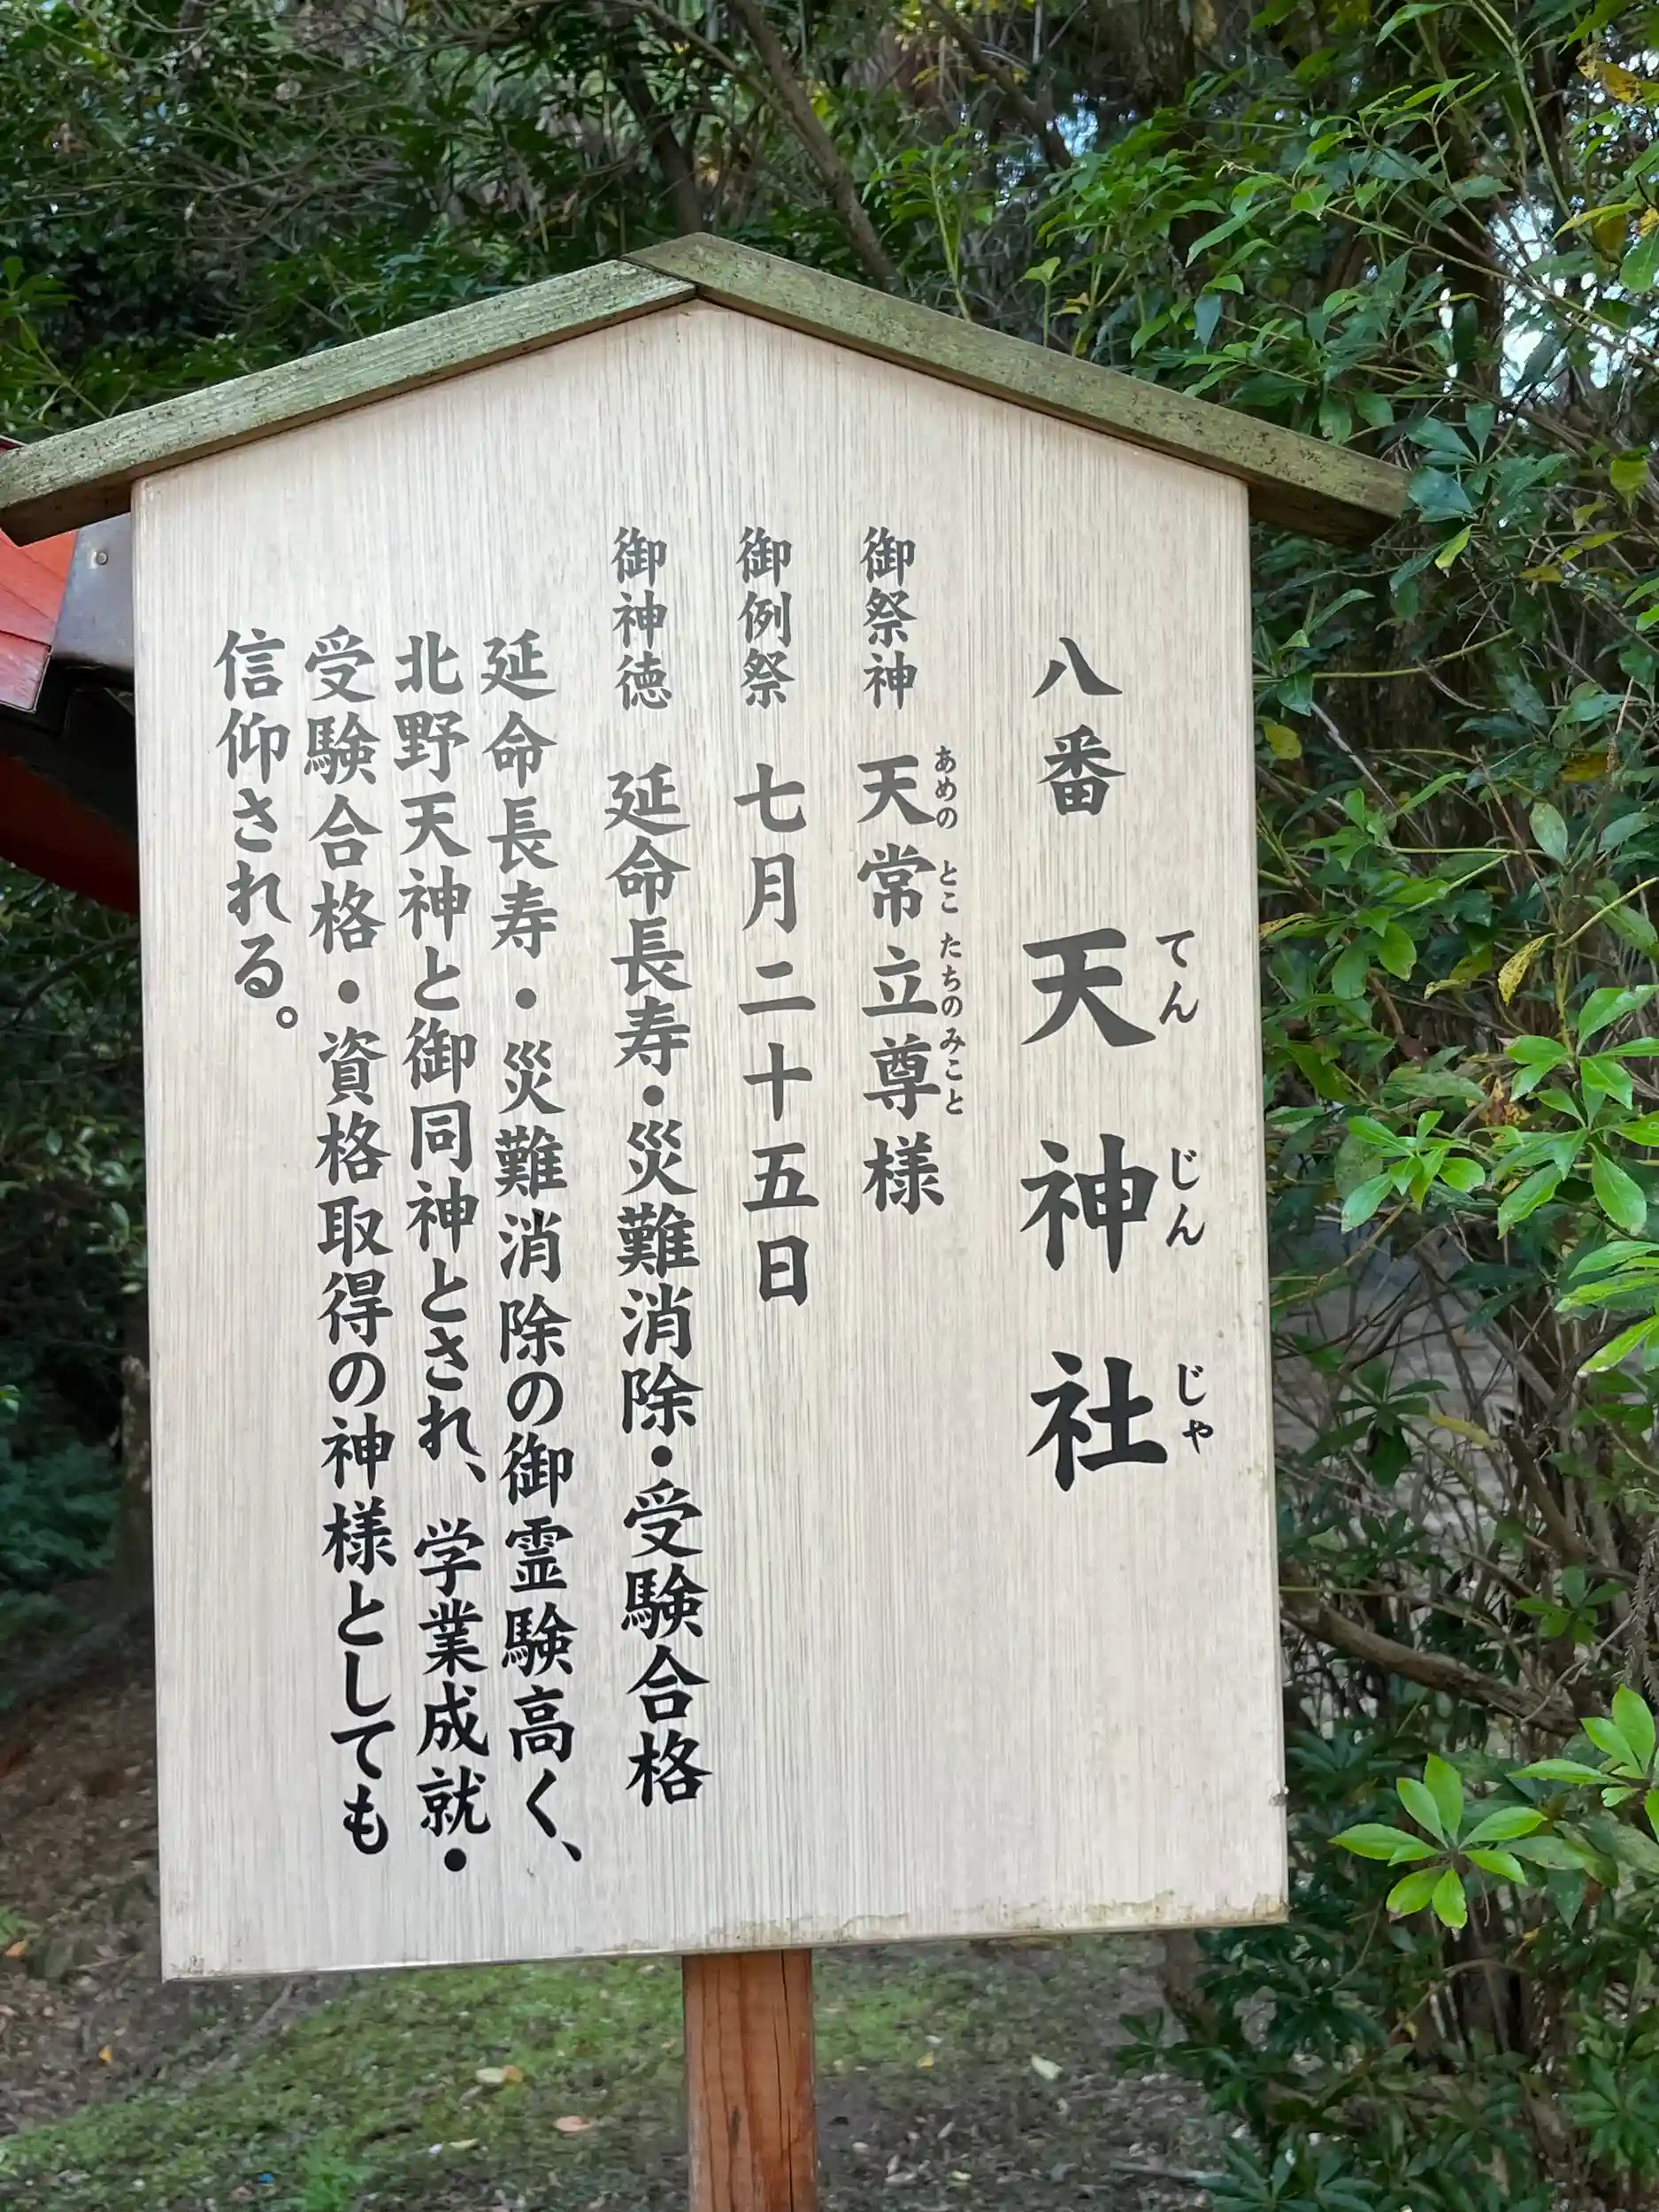 八番 天神社
てんじんじゃ
御祭神 天常立尊様
あめの とこ たちの みこと
御例祭 七月二十五日
御神徳 延命長寿・災難消除・受験合格
延命長寿・災難消除の御霊験高く、
北野天神と御同神とされ、学業成就・
受験合格・資格取得の神様としても
信仰される。